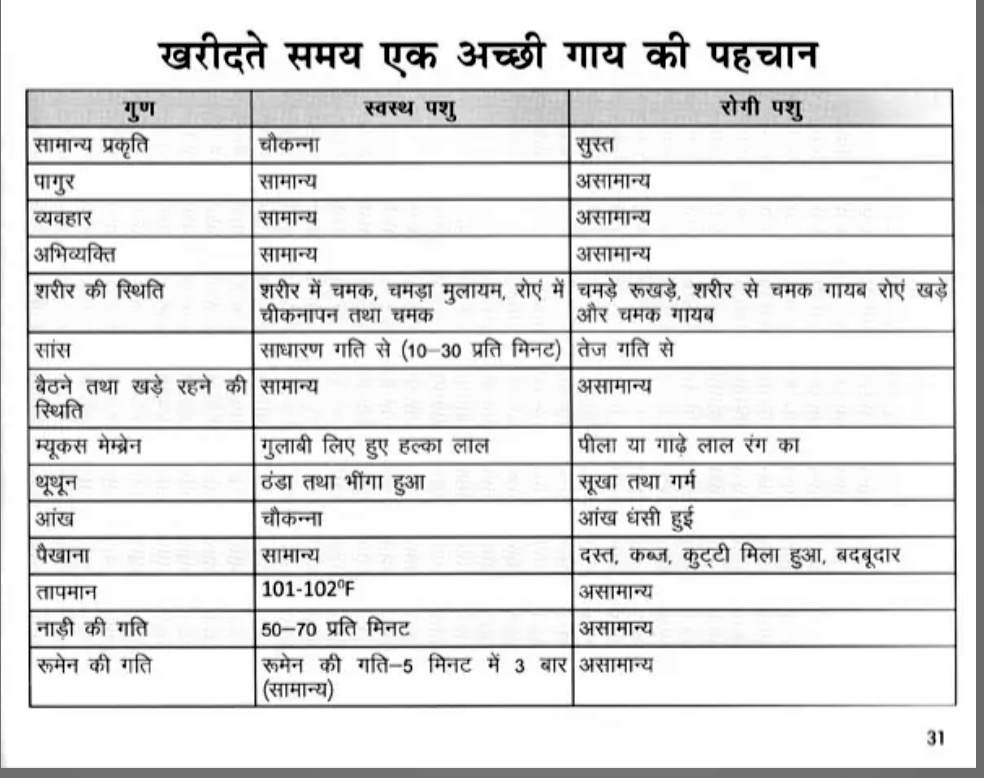 खरीदते समय एक अच्छी गाय की पहचान
गुण स्वस्थ पशु रोगी पशु
सामान्य प्रकृति चौकन्ना सुस्त
पागुर सामान्य असामान्य
व्यवहार सामान्य असामान्य
अभिव्यक्ति सामान्य असामान्य
शरीर की स्थिति शरीर में चमक, चमड़ा मुलायम, रोएं में चमड़े रूखड़े, शरीर से चमक गायब रोएं खड़े
चीकनापन तथा चमक और चमक गायब
सांस साधारण गति से (10–30 प्रति मिनट) तेज गति से
बैठने तथा खड़े रहने की सामान्य असामान्य
स्थिति
म्यूकस मेम्ब्रेन गुलाबी लिए हुए हल्का लाल पीला या गाढ़े लाल रंग का
थूथून ठंडा तथा भींगा हुआ सूखा तथा गर्म
आंख चौकन्ना आंख धंसी हुई
पैखाना सामान्य दस्त, कब्ज, कुट्टी मिला हुआ, बदबूदार
तापमान 101-102⁰F असामान्य
नाड़ी की गति 50–70 प्रति मिनट असामान्य
रूमेन की गति रूमेन की गति–5 मिनट में 3 बार असामान्य
(सामान्य)
31